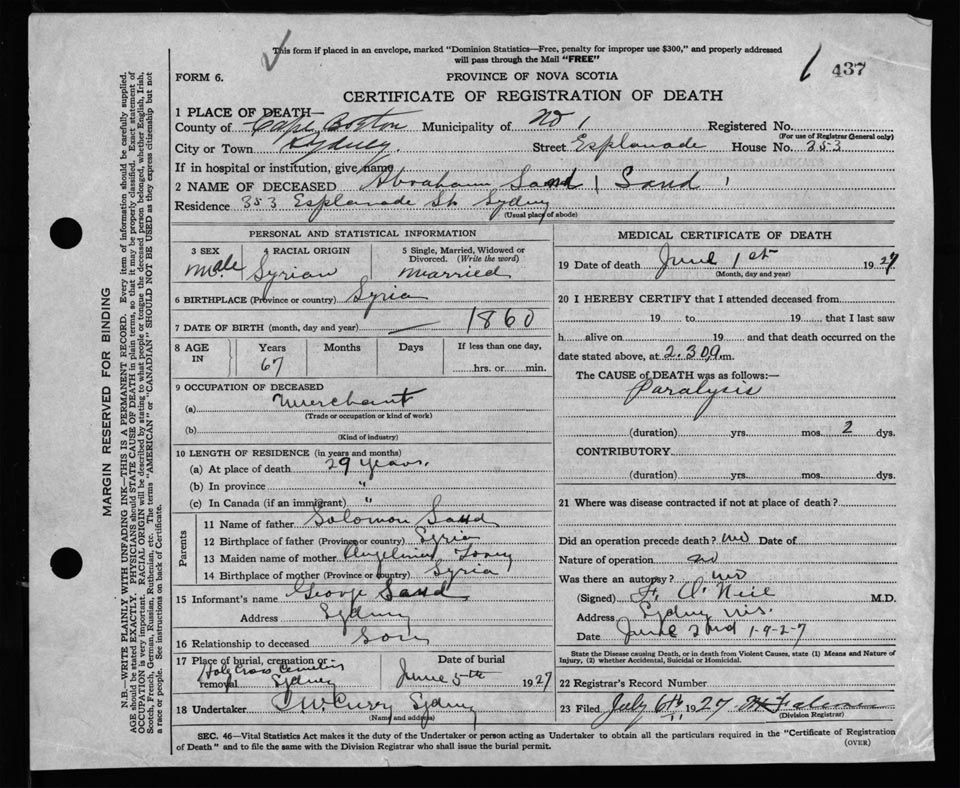 This form if placed in an envelope, marked "Dominion Statistics—Free, penalty for improper use $300," and properly addressed
will pass through the Mail "FREE"
FORM 6. PROVINCE OF NOVA SCOTIA 437
CERTIFICATE OF REGISTRATION OF DEATH
1 PLACE OF DEATH—
County of Cape Breton Municipality of No 1 Registered No.
(For use of Registrar General only)
City or Town Sydney. Street Esplanade House No. 353
If in hospital or institution, give name
2 NAME OF DECEASED Abraham Saad ( Sand )
Residence 353 Esplanade St Sydney
(Usual place of abode)
PERSONAL AND STATISTICAL INFORMATION
3 SEX 4 RACIAL ORIGIN 5 Single, Married, Widowed or
Divorced. (Write the word)
Male. Syrian Married
6 BIRTHPLACE (Province or country) Syria
7 DATE OF BIRTH (month, day and year) — 1860
8 AGE IN Years Months Days If less than one day,
67 hrs. or min.
9 OCCUPATION OF DECEASED
(a) Merchant
(Trade or occupation or kind of work)
(b)
(Kind of industry)
10 LENGTH OF RESIDENCE (in years and months)
(a) At place of death 29 years.
(b) In province "
(c) In Canada (if an immigrant) "
Parents
11 Name of father Solomon Saad
12 Birthplace of father (Province or country) Syria
13 Maiden name of mother Angelina
14 Birthplace of mother (Province or country) Syria
15 Informant's name George Saad
Address Sydney
16 Relationship to deceased Son
17 Place of burial, cremation or Date of burial
Holy Cross Cemetery
removal Sydney June 5th 1927
18 Undertaker Curry Sydney
(Name and address)
MEDICAL CERTIFICATE OF DEATH
19 Date of death June 1st 1927
(Month, day and year)
20 I HEREBY CERTIFY that I attended deceased from
19 to 19 that I last saw
h alive on 19 and that death occurred on the
date stated above, at 2.30 a m.
The CAUSE of DEATH was as follows:—
Paralysis
(duration) yrs. mos. 2 dys.
CONTRIBUTORY
(duration) yrs. mos. dys.
21 Where was disease contracted if not at place of death?
Did an operation precede death? no Date of
Nature of operation no
Was there an autopsy? no
(Signed) F. O'Neil M.D.
Address Sydney N.S.
Date June 2nd 1-9-2-7
State the Disease causing Death, or in death from Violent Causes, state (1) Means and Nature of
Injury, (2) whether Accidental, Suicidal or Homicidal.
22 Registrar's Record Number
23 Filed July 6th 1927
(Division Registrar)
SEC. 46—Vital Statistics Act makes it the duty of the Undertaker or person acting as Undertaker to obtain all the particulars required in the "Certificate of Registration
of Death" and to file the same with the Division Registrar who shall issue the burial permit. (OVER)
MARGIN RESERVED FOR BINDING
N.B.—WRITE PLAINLY WITH UNFADING INK—THIS IS A PERMANENT RECORD. Every item of information should be carefully supplied.
AGE should be stated EXACTLY. PHYSICIANS should STATE CAUSE OF DEATH in plain terms, so that it may be properly classified. Exact statement of
OCCUPATION is very important. RACIAL ORIGIN will be described by stating to what people or tongue the deceased person belonged, whether English, Irish,
Scotch, French, German, Russian, Ruthenian, etc. The terms "AMERICAN" or "CANADIAN" SHOULD NOT BE USED as they express citizenship but not
a race or people. See instructions on back of Certificate.